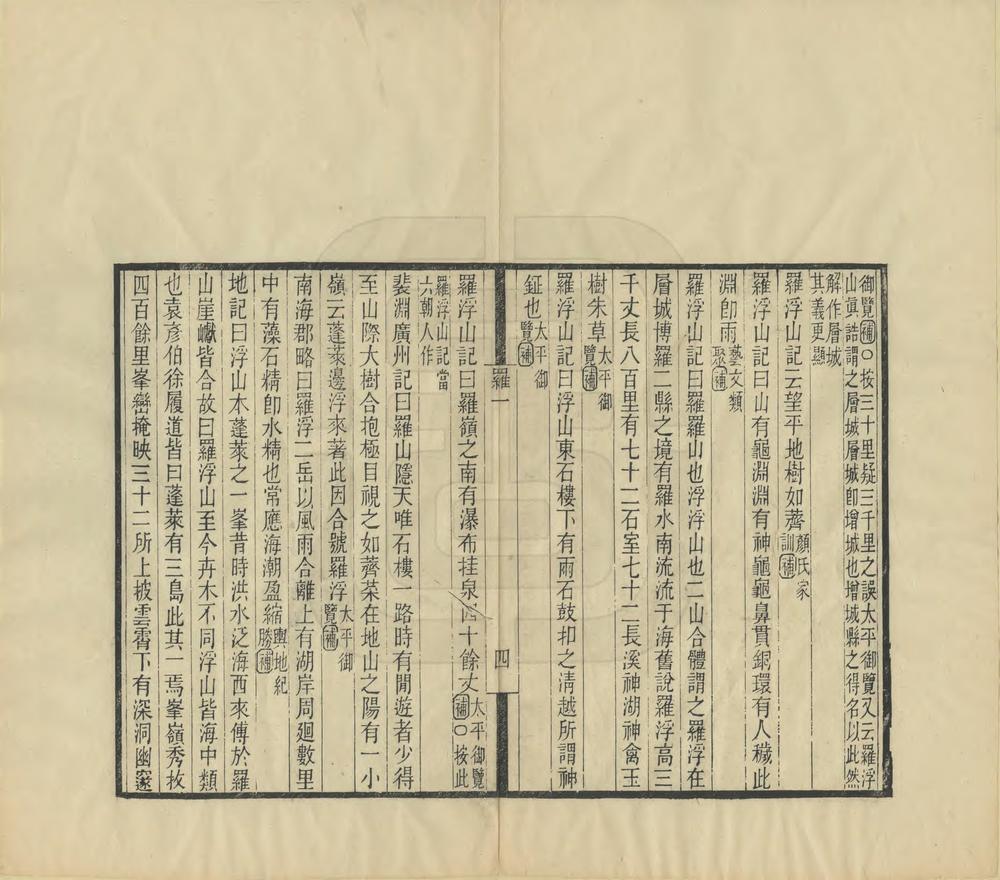 御覽補○按三十里疑三千里之誤太平御覽又云羅浮
山眞誥謂之層城層城卽增城也增城縣之得名以此然
解作層城
其義更顯
羅浮山記云望平地樹如薺顏氏家訓補
羅浮山記曰山有龜淵淵有神龜龜鼻貫銅環有人穢此
淵卽雨藝文類聚補
羅浮山記曰羅羅山也浮浮山也二山合體謂之羅浮在
層城博羅二縣之境有羅水南流流于海舊說羅浮高三
千丈長八百里有七十二石室七十二長溪神湖神禽玉
樹朱草太平御覽補
羅浮山記曰浮山東石樓下有兩石鼓扣之淸越所謂神
鉦也太平御覽補
羅一
四
羅浮山記曰羅嶺之南有瀑布挂泉四十餘丈太平御覽補○按此
羅浮山記當
六朝人作
裴淵廣州記曰羅山隱天唯石樓一路時有閒遊者少得
至山際大樹合抱極目視之如薺菜在地山之陽有一小
嶺云蓬萊邊浮來著此因合號羅浮太平御覽補
南海郡略曰羅浮二岳以風雨合離上有湖岸周廻數里
中有藻石精卽水精也常應海潮盈縮輿地紀勝補
地記曰浮山本蓬萊之一峯昔時洪水泛海西來傅於羅
山崖巘皆合故曰羅浮山至今卉木不同浮山皆海中類
也袁彥伯徐履道皆曰蓬萊有三島此其一焉峯嶺秀杪
四百餘里峯巒掩映三十二所上披雲霄下有深洞幽邃